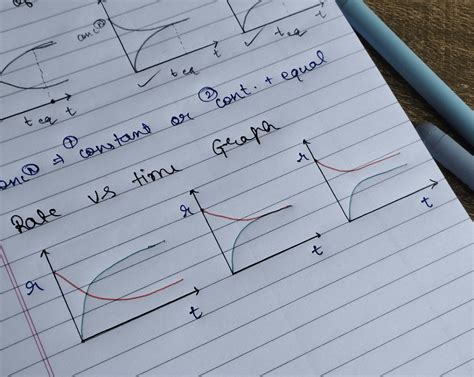 conc^n
t eq
t
t eq
t
t eq
t
conc^n ⇒ ① constant or ② cont. + equal
Rate vs time Graph
r
t
r
t
r
t